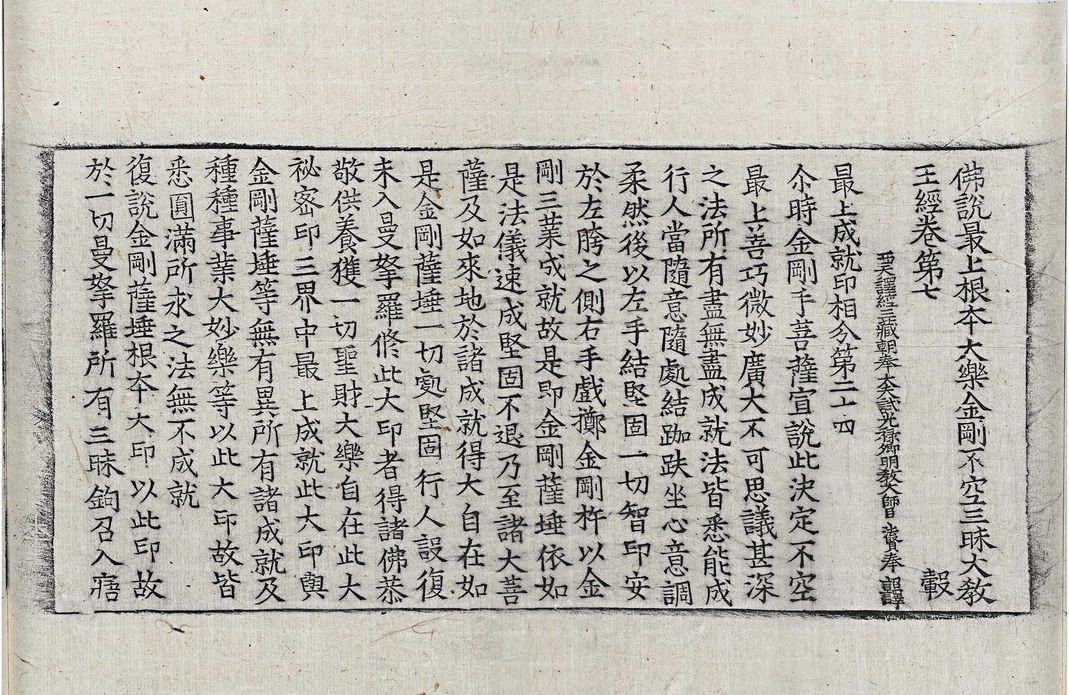 佛說最上根本大樂金剛不空三昧大教
王經卷第七　轂
西天譯經三藏朝奉大夫試光祿卿明教大師臣法賢奉詔譯
最上成就印相分第二十四
尒時金剛手菩薩宣說此決定不空
最上善巧微妙廣大不可思議甚深
之法所有盡無盡成就法皆悉能成
行人當隨意隨處結跏趺坐心意調
柔然後以左手結堅固一切智印安
於左胯之側右手戲擲金剛杵以金
剛三業成就故是即金剛薩埵依如
是法儀速成堅固不退乃至諸大菩
薩及如來地於諸成就得大自在如
是金剛薩埵一切處堅固行人設復
未入曼拏羅修此大印者得諸佛恭
敬供養獲一切聖財大樂自在此大
祕密印三界中最上成就此大印與
金剛薩埵等無有異所有諸成就及
種種事業大妙樂等以此大印故皆
悉圓滿所求之法無不成就
復說金剛薩埵根本大印以此印故
於一切曼拏羅所有三昧鉤召入寤